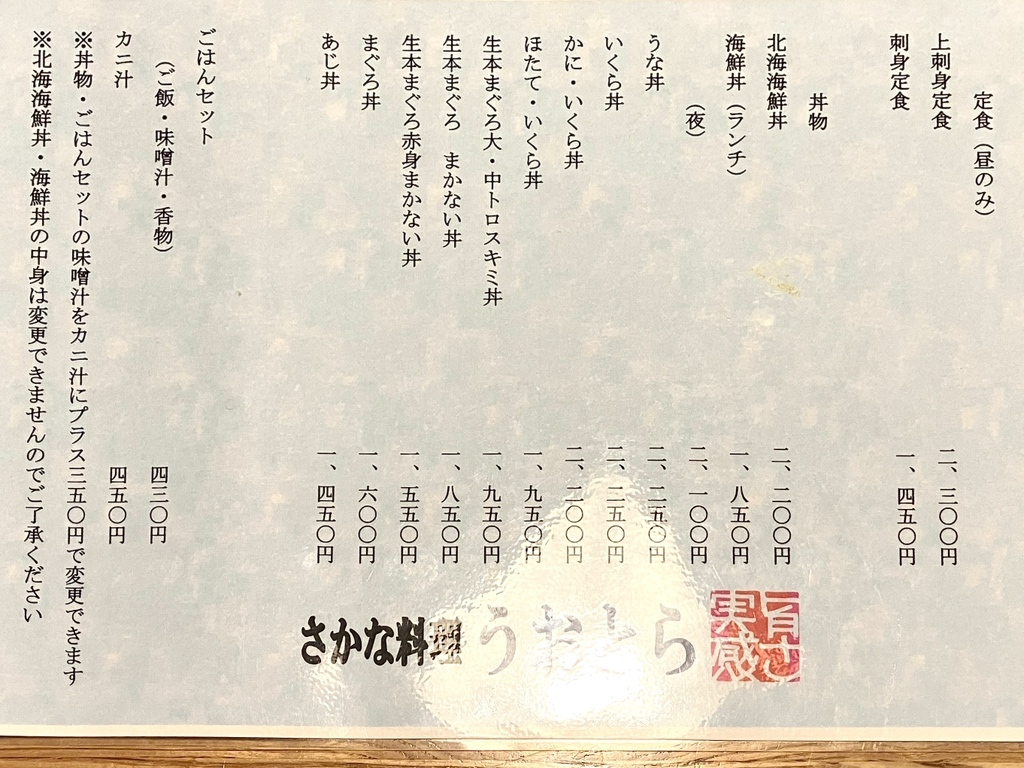 定食（昼のみ）
上刺身定食　二、三〇〇円
刺身定食　一、四五〇円
丼物
北海海鮮丼　二、二〇〇円
海鮮丼（ランチ）　一、八五〇円
（夜）　二、一〇〇円
うな丼　二、二五〇円
いくら丼　二、二五〇円
かに・いくら丼　二、二〇〇円
ほたて・いくら丼　一、九五〇円
生本まぐろ大・中トロスキミ丼　一、九五〇円
生本まぐろ　まかない丼　一、八五〇円
生本まぐろ赤身まかない丼　一、五五〇円
まぐろ丼　一、六〇〇円
あじ丼　一、四五〇円
ごはんセット
（ご飯・味噌汁・香物）　四三〇円
カニ汁　四五〇円
※丼物・ごはんセットの味噌汁をカニ汁にプラス三五〇円で変更できます
※北海海鮮丼・海鮮丼の中身は変更できませんのでご了承ください
さかな料理 うおとら